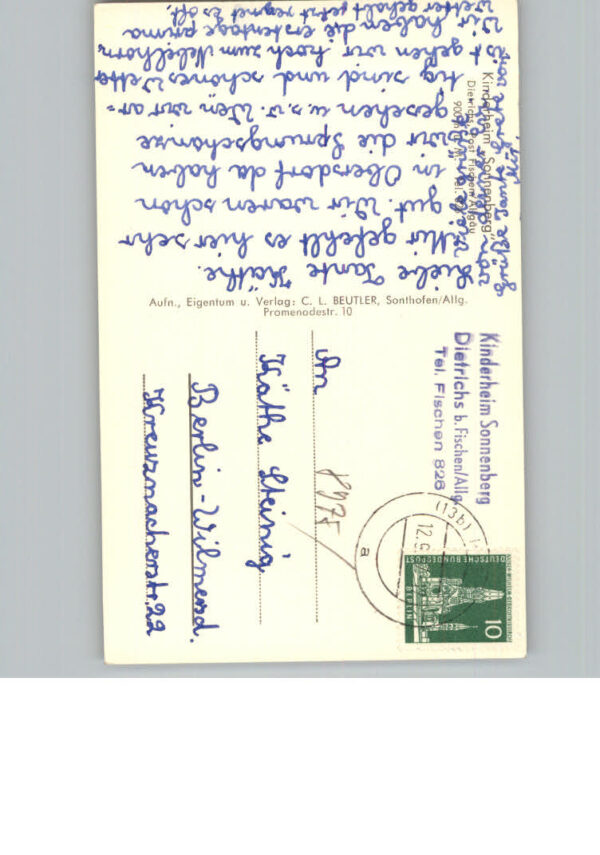 Kinderheim „Sonnenberg“
Dietrichs Post Fischen/Allgäu
900 m ü. M. Tel.
Liebe Tante Käthe.
Mir gefehlt es hier sehr
gut. Wir waren schon
in Obersdorf da haben
wir die Sprungschanze
gesehen u.s.w. Wen wir ar-
tig sind und schönes Wetter
ist gehen wir hoch zum Nebelhorn,
Wir haben die erstentage prima
wetter gehabt jetzt regnet es oft.
Aufn., Eigentum u. Verlag: C. L. BEUTLER, Sonthofen/Allg.
Promenadestr. 10
Kinderheim Sonnenberg
Dietrichs b. Fischen/Allg.
Tel. Fischen 828
An
Käthe Steinig
Berlin-Wilmersd.
Kreuznacherstr. 22
8975
(13b)
12.6
a
DEUTSCHE BUNDESPOST
BERLIN
10